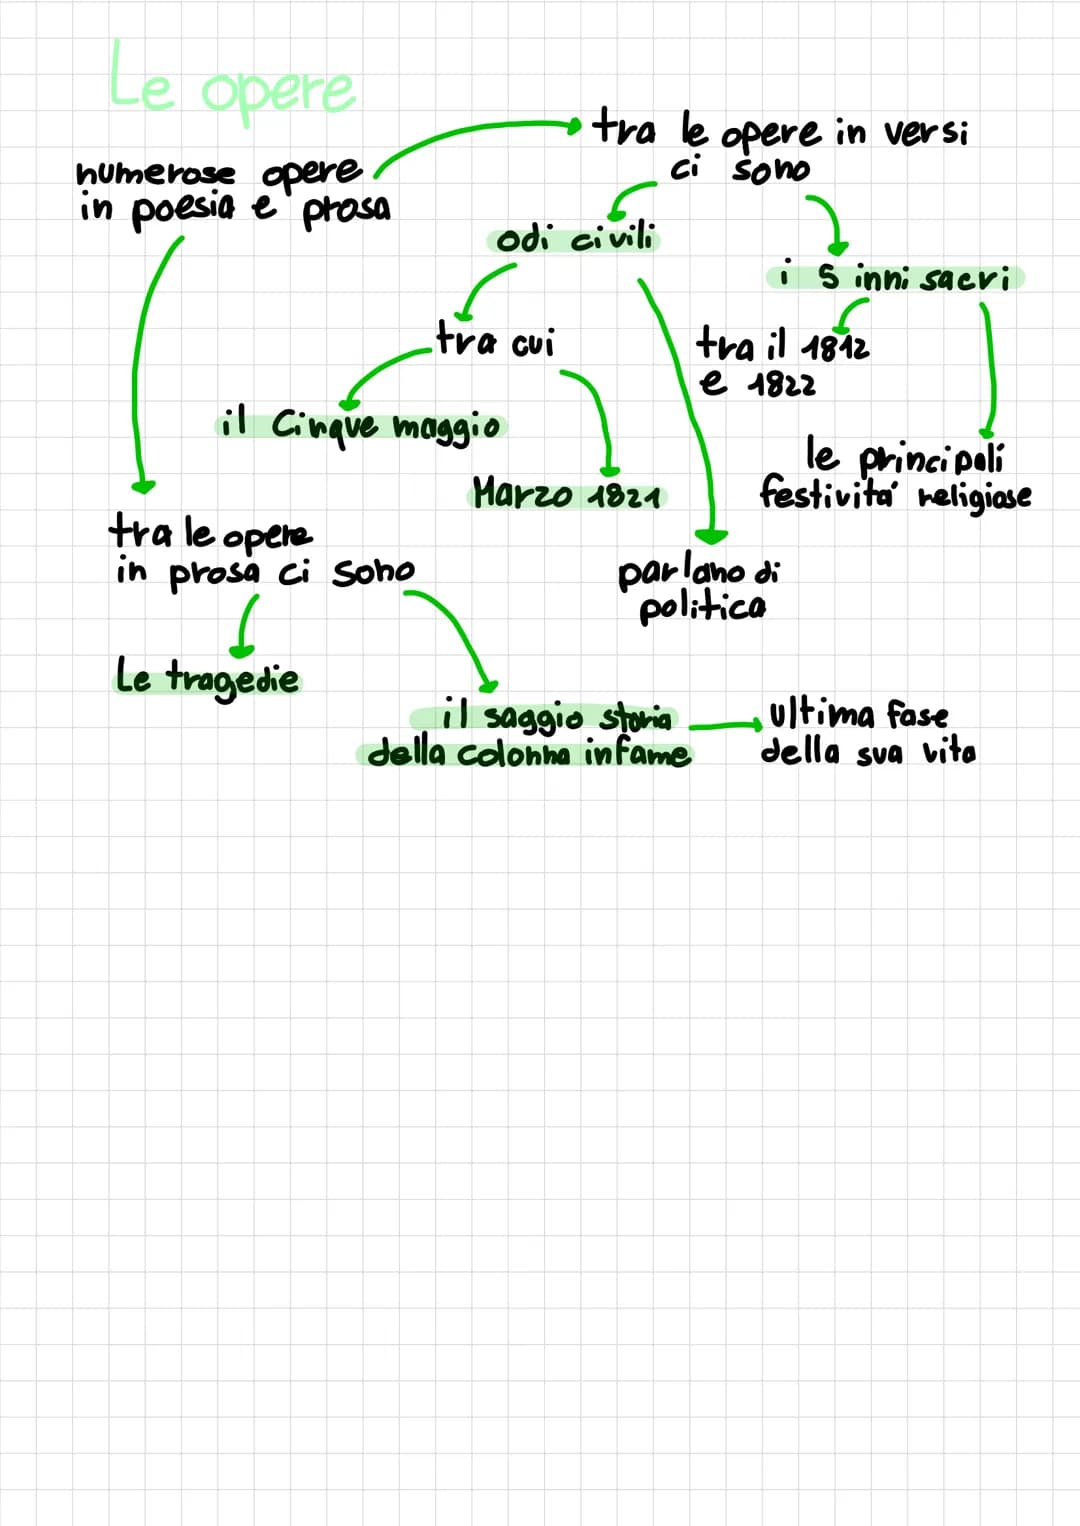 Le opere
numerose opere
in poesia e prosa
tra le opere in versi
ci sono
odi civili
i 5 inni sacri
tra cui
tra il 1812
e 1822
il Cinque maggio
le principali
festivitá religiose
Marzo 1821
tra le opere
in prosa ci sono
parlano di
politica
Le tragedie
il saggio storia
della colonna infame
ultima fase
della sua vita